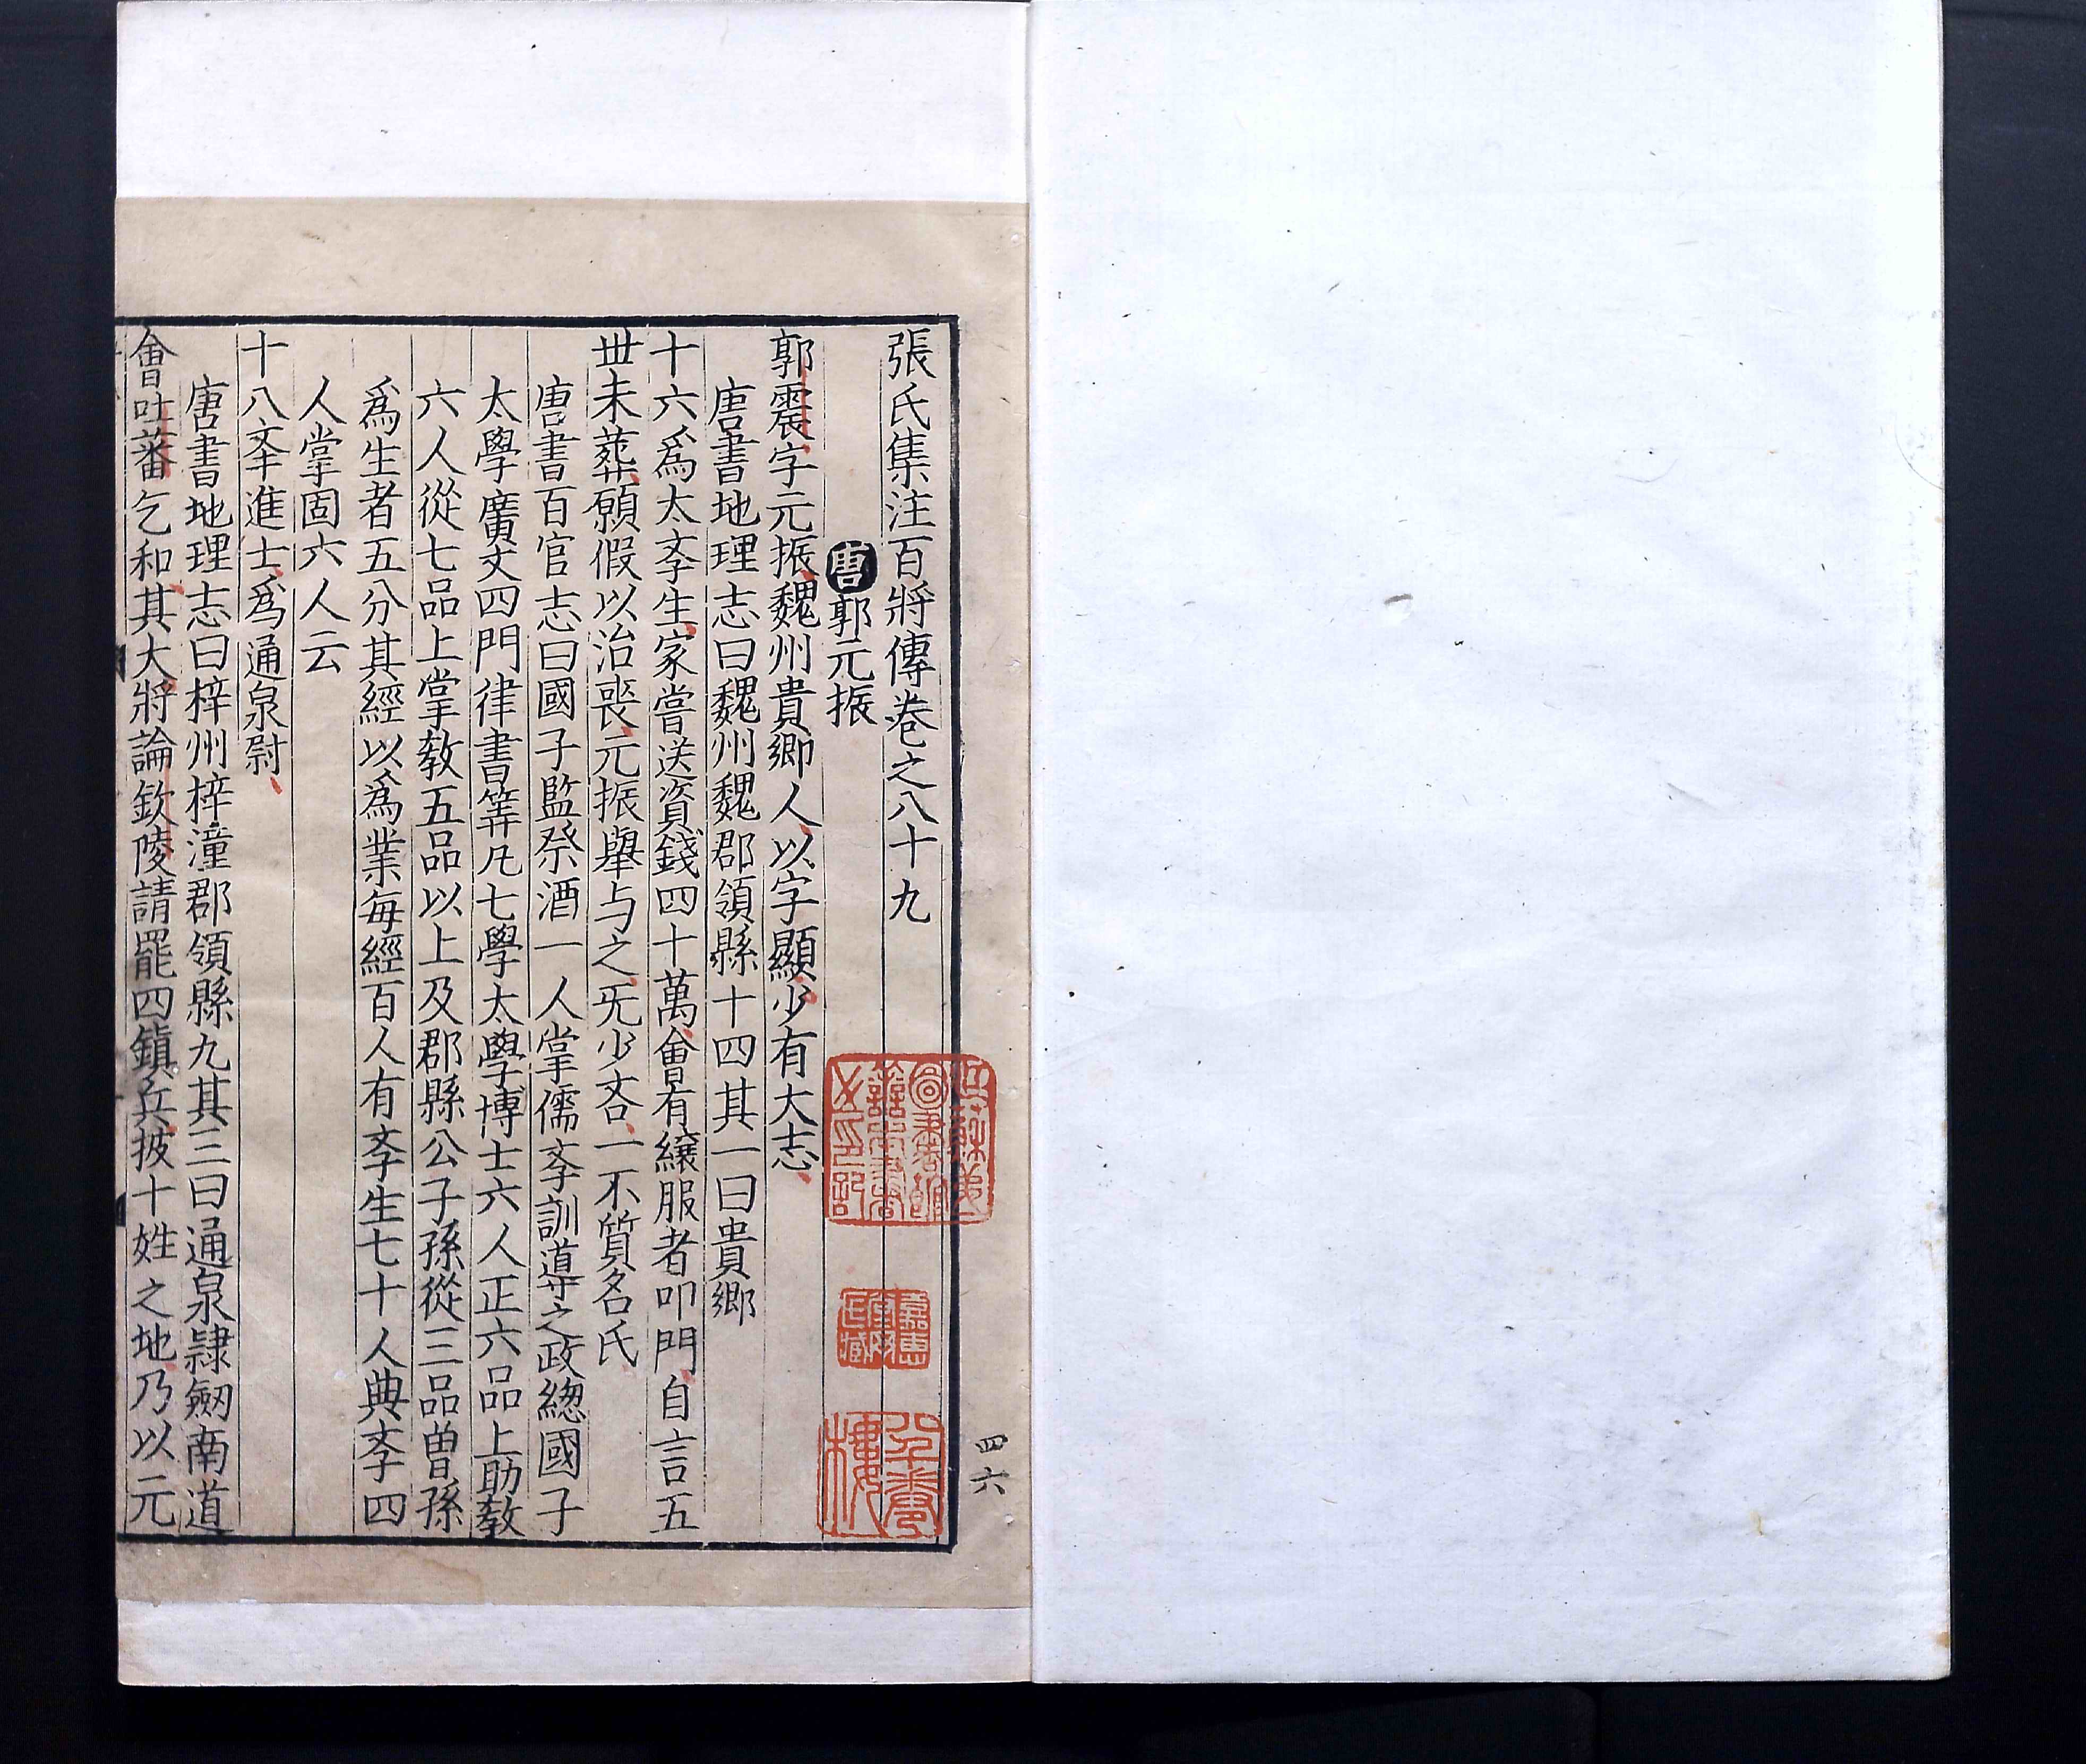 張氏集注百將傳卷之八十九
唐 郭元振
郭震字元振魏州貴鄉人以字顯少有大志
唐書地理志曰魏州魏郡領縣十四其一曰貴鄉
十六爲太斈生家嘗送資錢四十萬會有縗服者叩門自言五
丗未葬願假以治喪元振舉与之无少吝一不質名氏
唐書百官志曰國子監祭酒一人掌儒斈訓導之政緫國子
太學廣文四門律書筭凡七學太學博士六人正六品上助教
六人從七品上掌教五品以上及郡縣公子孫從三品曾孫
爲生者五分其經以爲業每經百人有斈生七十人典斈四
人掌固六人云
十八斈進士爲通泉尉
唐書地理志曰梓州梓潼郡領縣九其三曰通泉隷劒南道
會吐蕃乞和其大將論欽陵請罷四鎮兵披十姓之地乃以元
四六
江蘇第一
圖書館
善本書
之印記
嘉惠
堂丁
氏藏
八千卷
樓